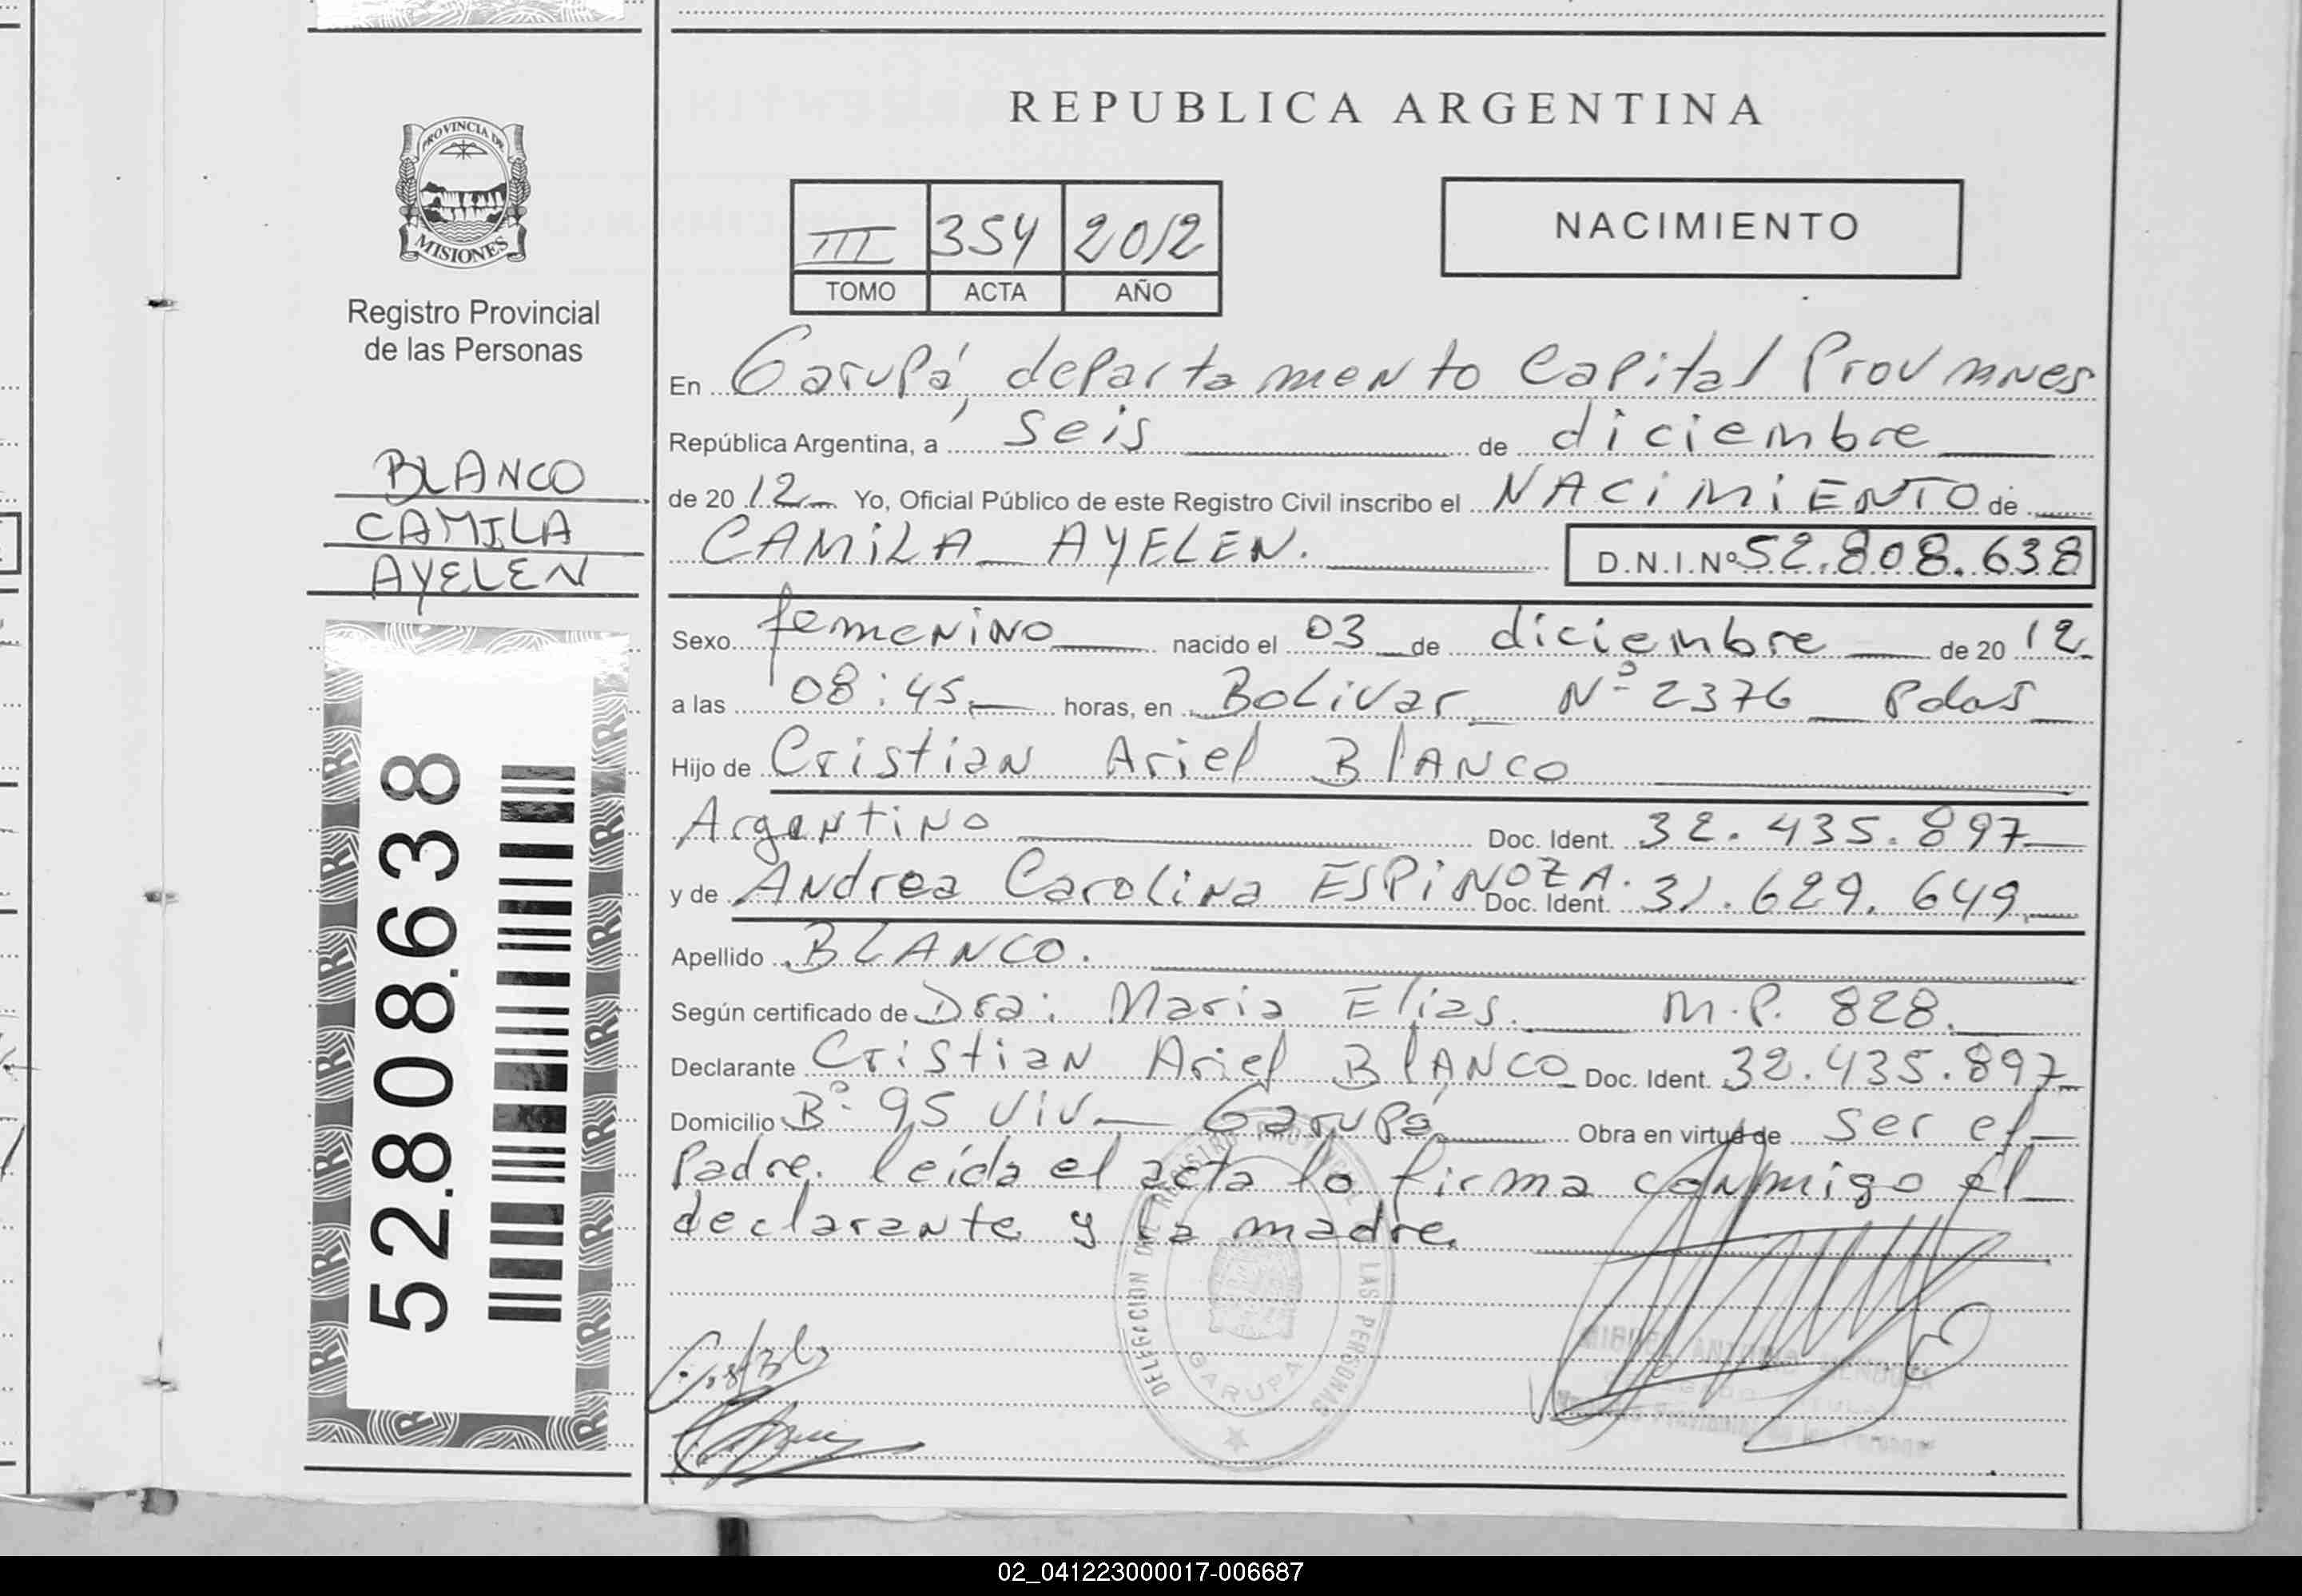 REPUBLICA ARGENTINA
PROVINCIA DE
MISIONES
Registro Provincial
de las Personas
III 354 2012
TOMO ACTA AÑO
NACIMIENTO
BLANCO
CAMILA
AYELEN
52.808.638
En Garupá, departamento Capital Prov mnes
República Argentina, a seis de diciembre
de 2012 Yo, Oficial Público de este Registro Civil inscribo el NACIMIENTO de
CAMILA AYELEN. D.N.I.Nº 52.808.638
Sexo femenino nacido el 03 de diciembre de 2012
a las 08:45 horas, en Bolivar Nº 2376 Pdas
Hijo de Cristian Ariel BlANCO
Argentino Doc. Ident. 32.435.897
y de Andrea Carolina ESPINOZA. Doc. Ident. 31.629.649
Apellido BLANCO.
Según certificado de Dra: Maria Elias. M.P. 828.
Declarante Cristian Ariel BlANCO Doc. Ident. 32.435.897
Domicilio Bº 95 viv. Garupá Obra en virtud de ser el
Padre. leida el acta lo firma conmigo el
declarante y la madre.
LAS PERSONAS
GARUPA
02_041223000017-006687